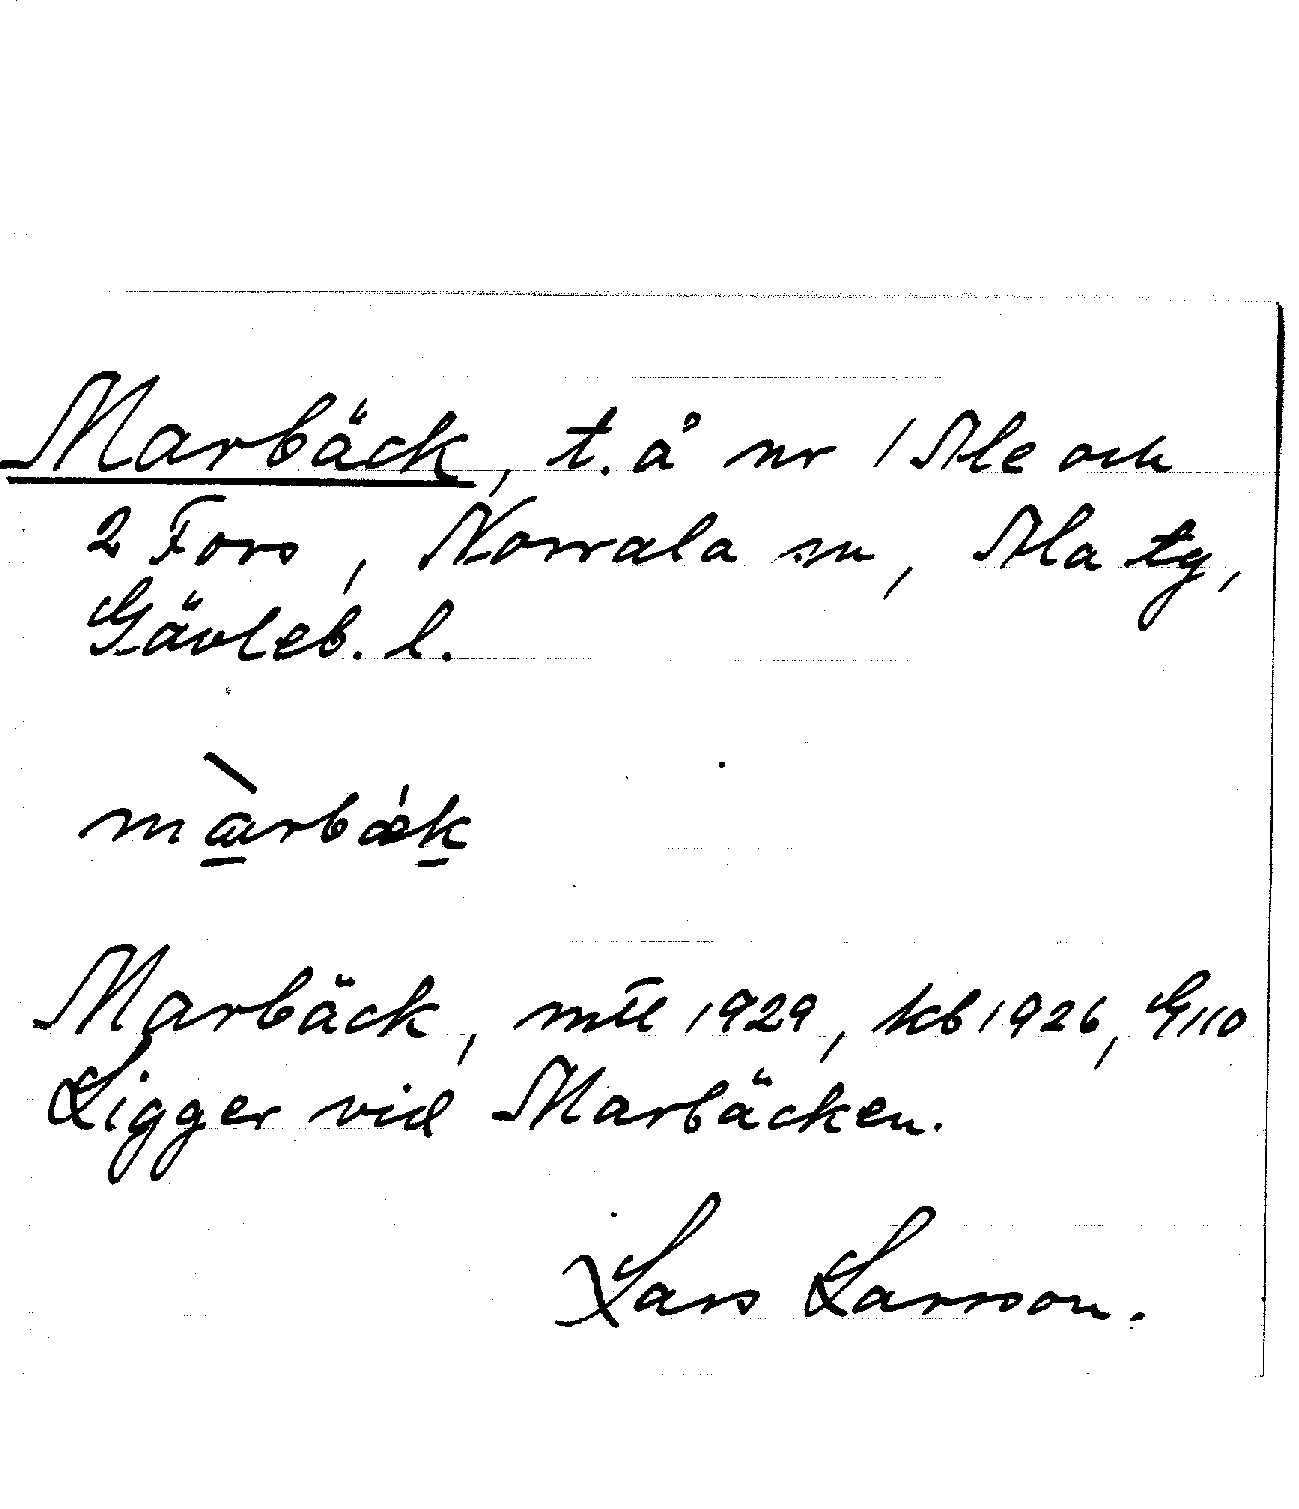 Marbäck, t. å nr 1 Ale och
2 Fors, Norrala sn, Ala tg,
Gävleb. l.
màrbæ̍k
Marbäck, mtl 1929, kb 1926, G110
Ligger vid Marbäcken.
Lars Larsson.